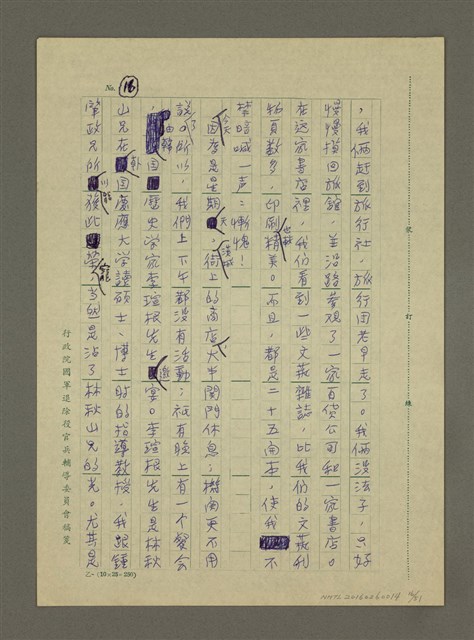 No. 16
，我倆趕到旅行社，旅行團老早走了。我倆沒法子，只好
慢慢摸回旅館，並沿路參觀了一家百貨公司和一家書店。
在這家書店裡，我們看到一些文藝雜誌，比我們的文藝刊
物頁數多，也較印刷精美。而且，都是二十五開本，使我不
禁暗喊一声：慚愧！
今天因為是星期天，漢城街上的商店大半関門休息；機関更不用
說了。所以，我們上下午都沒有活動；祇有晚上有一个餐会
，由韓国歷史学家李瑄根先生邀宴。李瑄根先生是林秋
山兄在韓国慶應大学讀碩士、博士時的指導教授，我跟鍾
肇政兄所以能獲此榮寵，当然是沾了林秋山兄的光。尤其是
裝訂線
行政院國軍退除役官兵輔導委員會稿箋
乙—（10×25＝250）
NMTL 20160260014